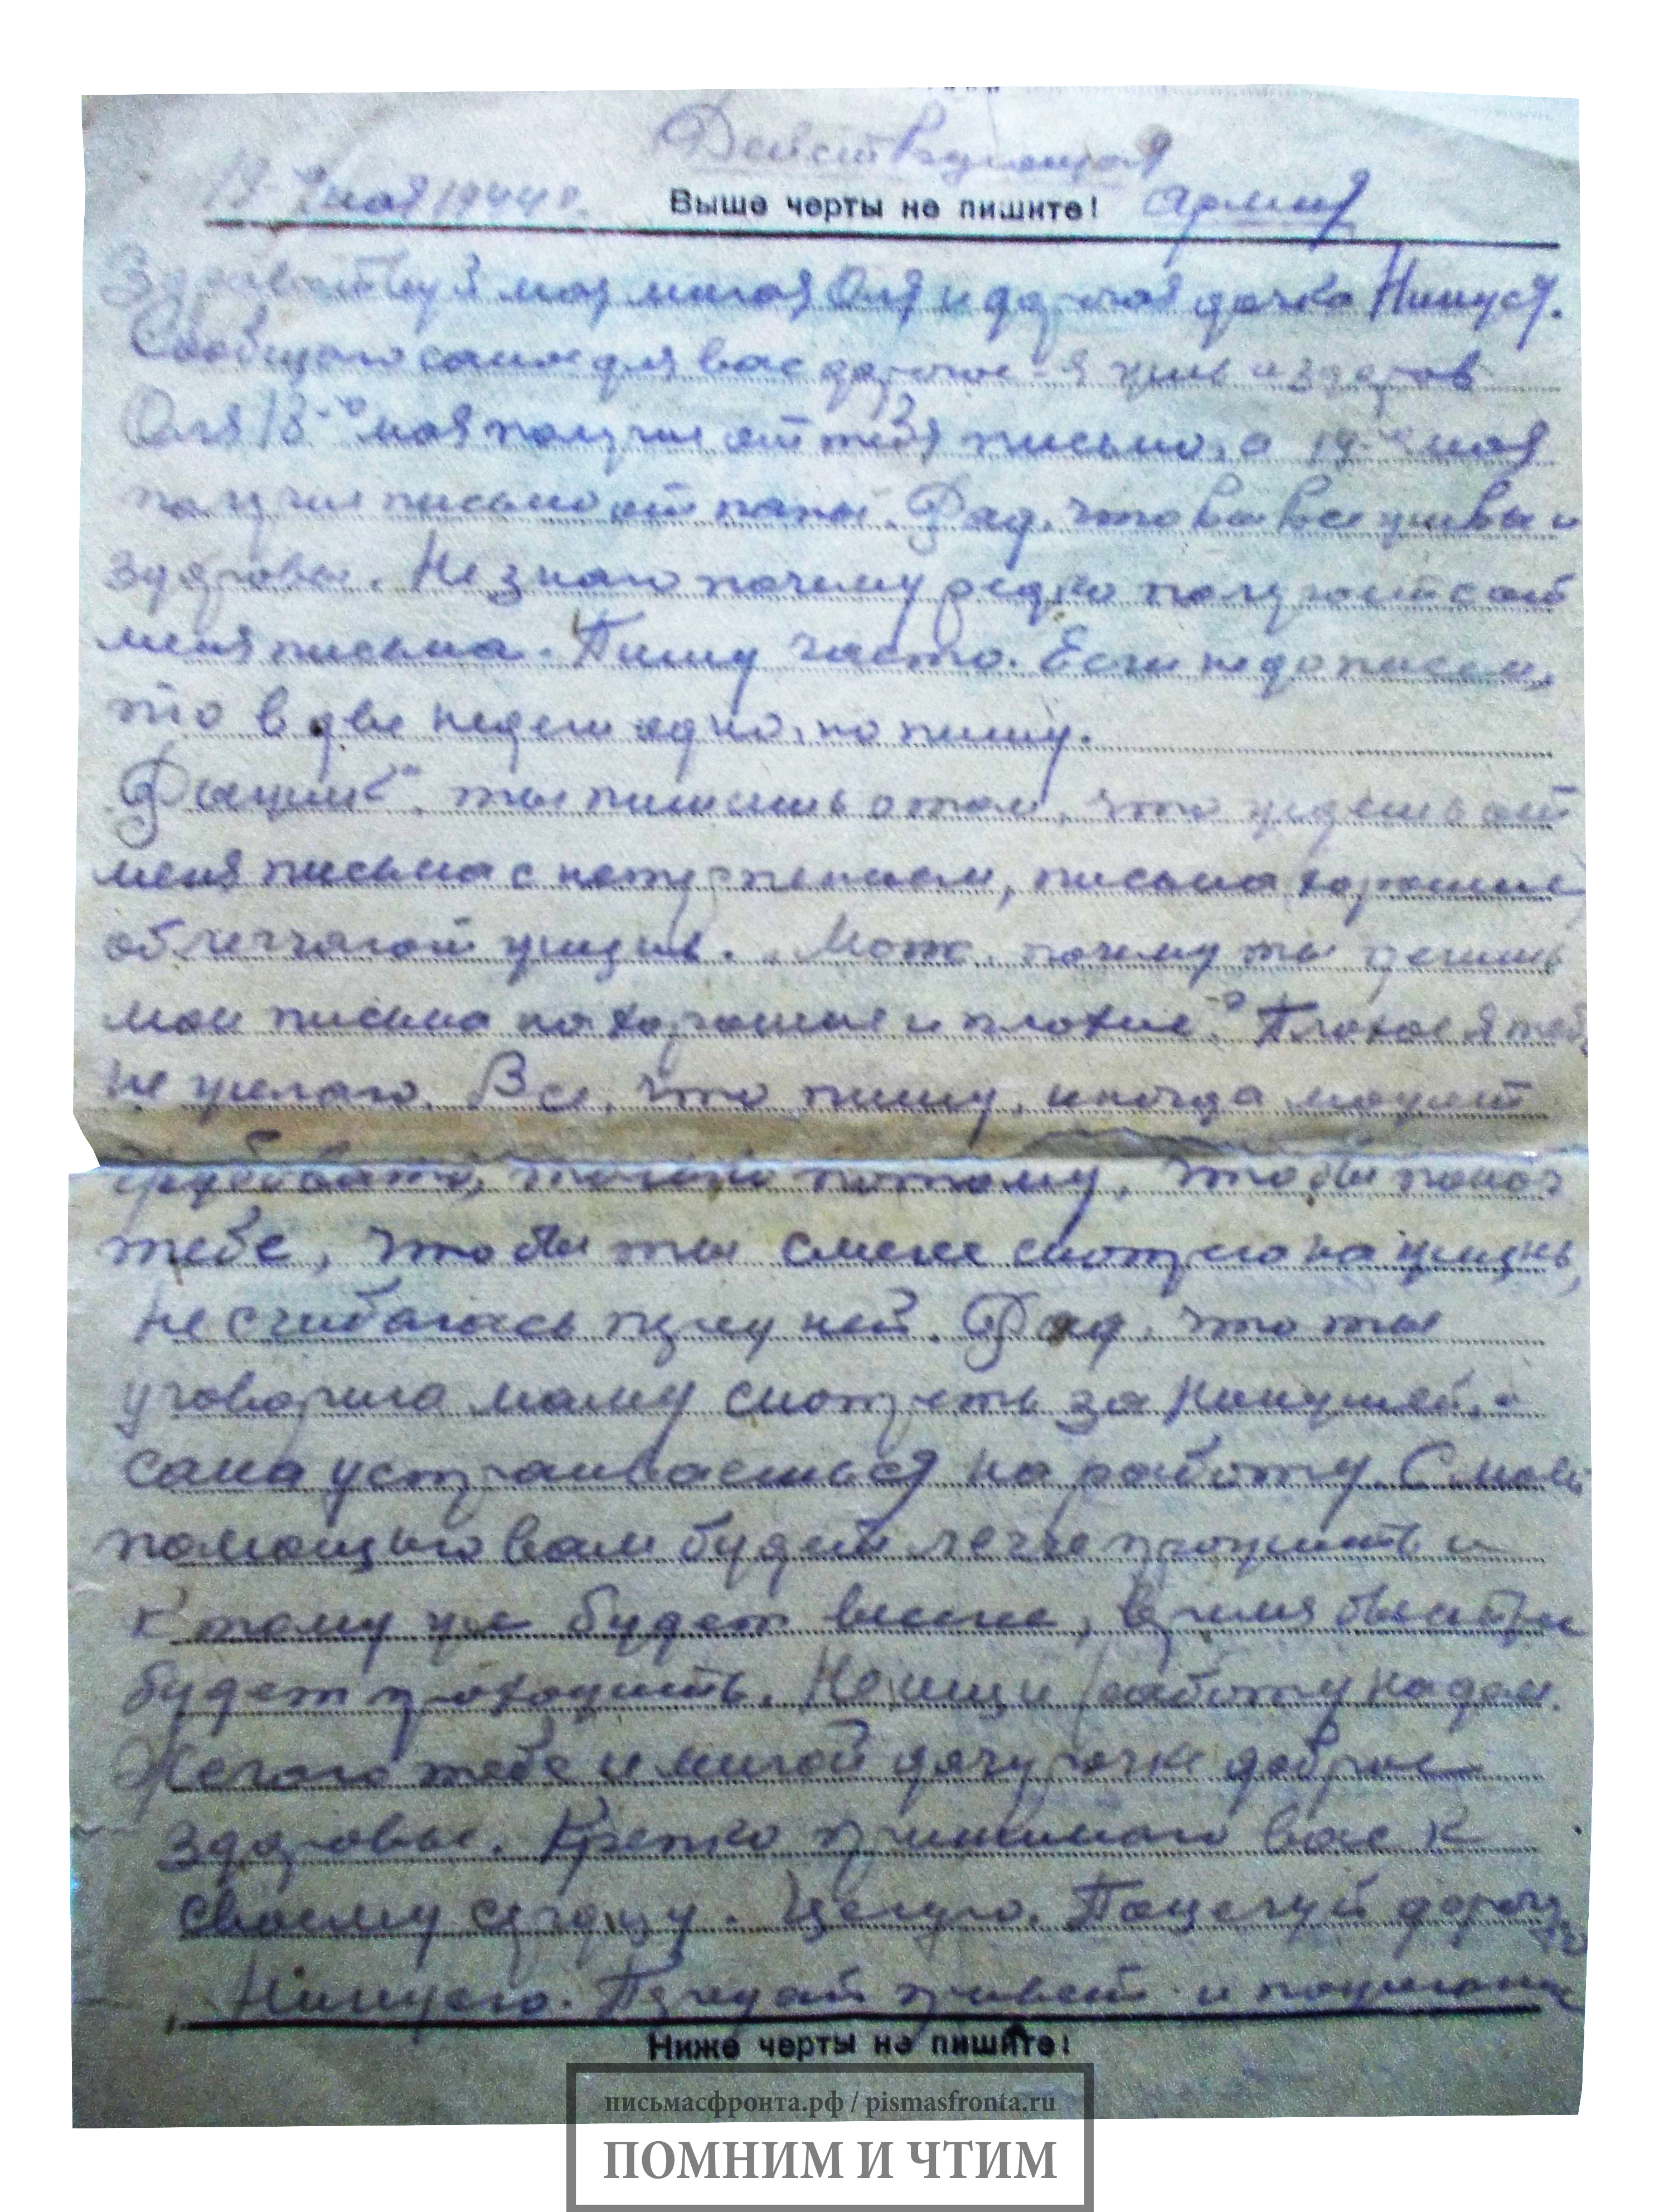 Действующая
19-го мая 1944 г. Выше черты не пишите! армия
Здравствуй моя милая Оля и дорогая дочка Нинуся.
Сообщаю самое для вас дорогое - я жив и здоров
Оля 18-го мая получил от тебя письмо, а 19-го мая
получил письмо от папы. Рад, что вы все живы и
здоровы. Не знаю почему редко получаете от
меня письма. Пишу часто. Если не до писем,
то в две недели одно, но пишу.
"Рыцик", ты пишешь о том, что ждешь от
меня письма с нетерпением, письма хорошие
облегчают жизнь. Мот, почему ты делишь
мои письма на хорошие и плохие? Плохое я тебе
не желаю. Все, что пишу, иногда может
грубовато, только потому, чтобы помоч
тебе, чтобы ты смелее смотрела на жизнь,
не сгибалась перед ней. Рад, что ты
уговорила маму смотреть за Нинушей, а
сама устраиваешься на работу. С моей
помощью вам будет легче прожить и
к тому же будет веселее, время быстрее
будет проходить. Но ищи работу на дом.
Желаю тебе и милой дочурочке доброе
здоровье. Крепко прижимаю вас к
своему сердцу. Целую. Поцелуй дорогую
Нинусю. Передай привет и пожелания
Ниже черты не пишите!
письмасфронта.рф / pismasfronta.ru
ПОМНИМ И ЧТИМ